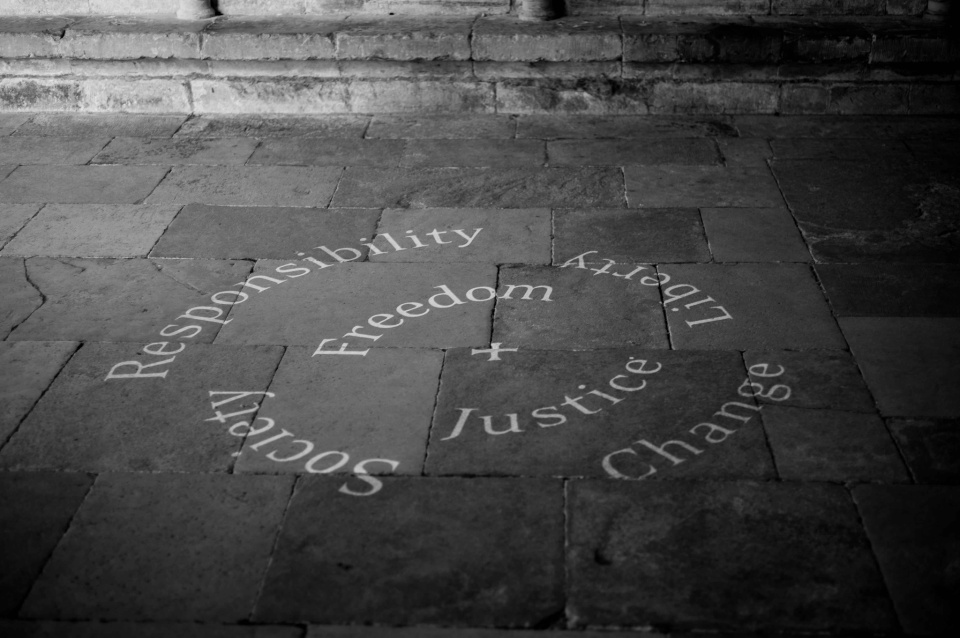 Responsibility
Liberty
Freedom
Justice
Change
Society